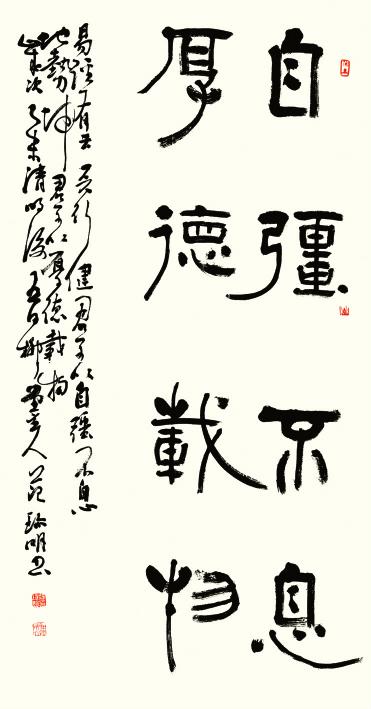 自彊不息
厚德載物
易經有云天行健君子以自彊不息
地勢坤君子以厚德載物
歲次乙未清明後五日 主人范 明書